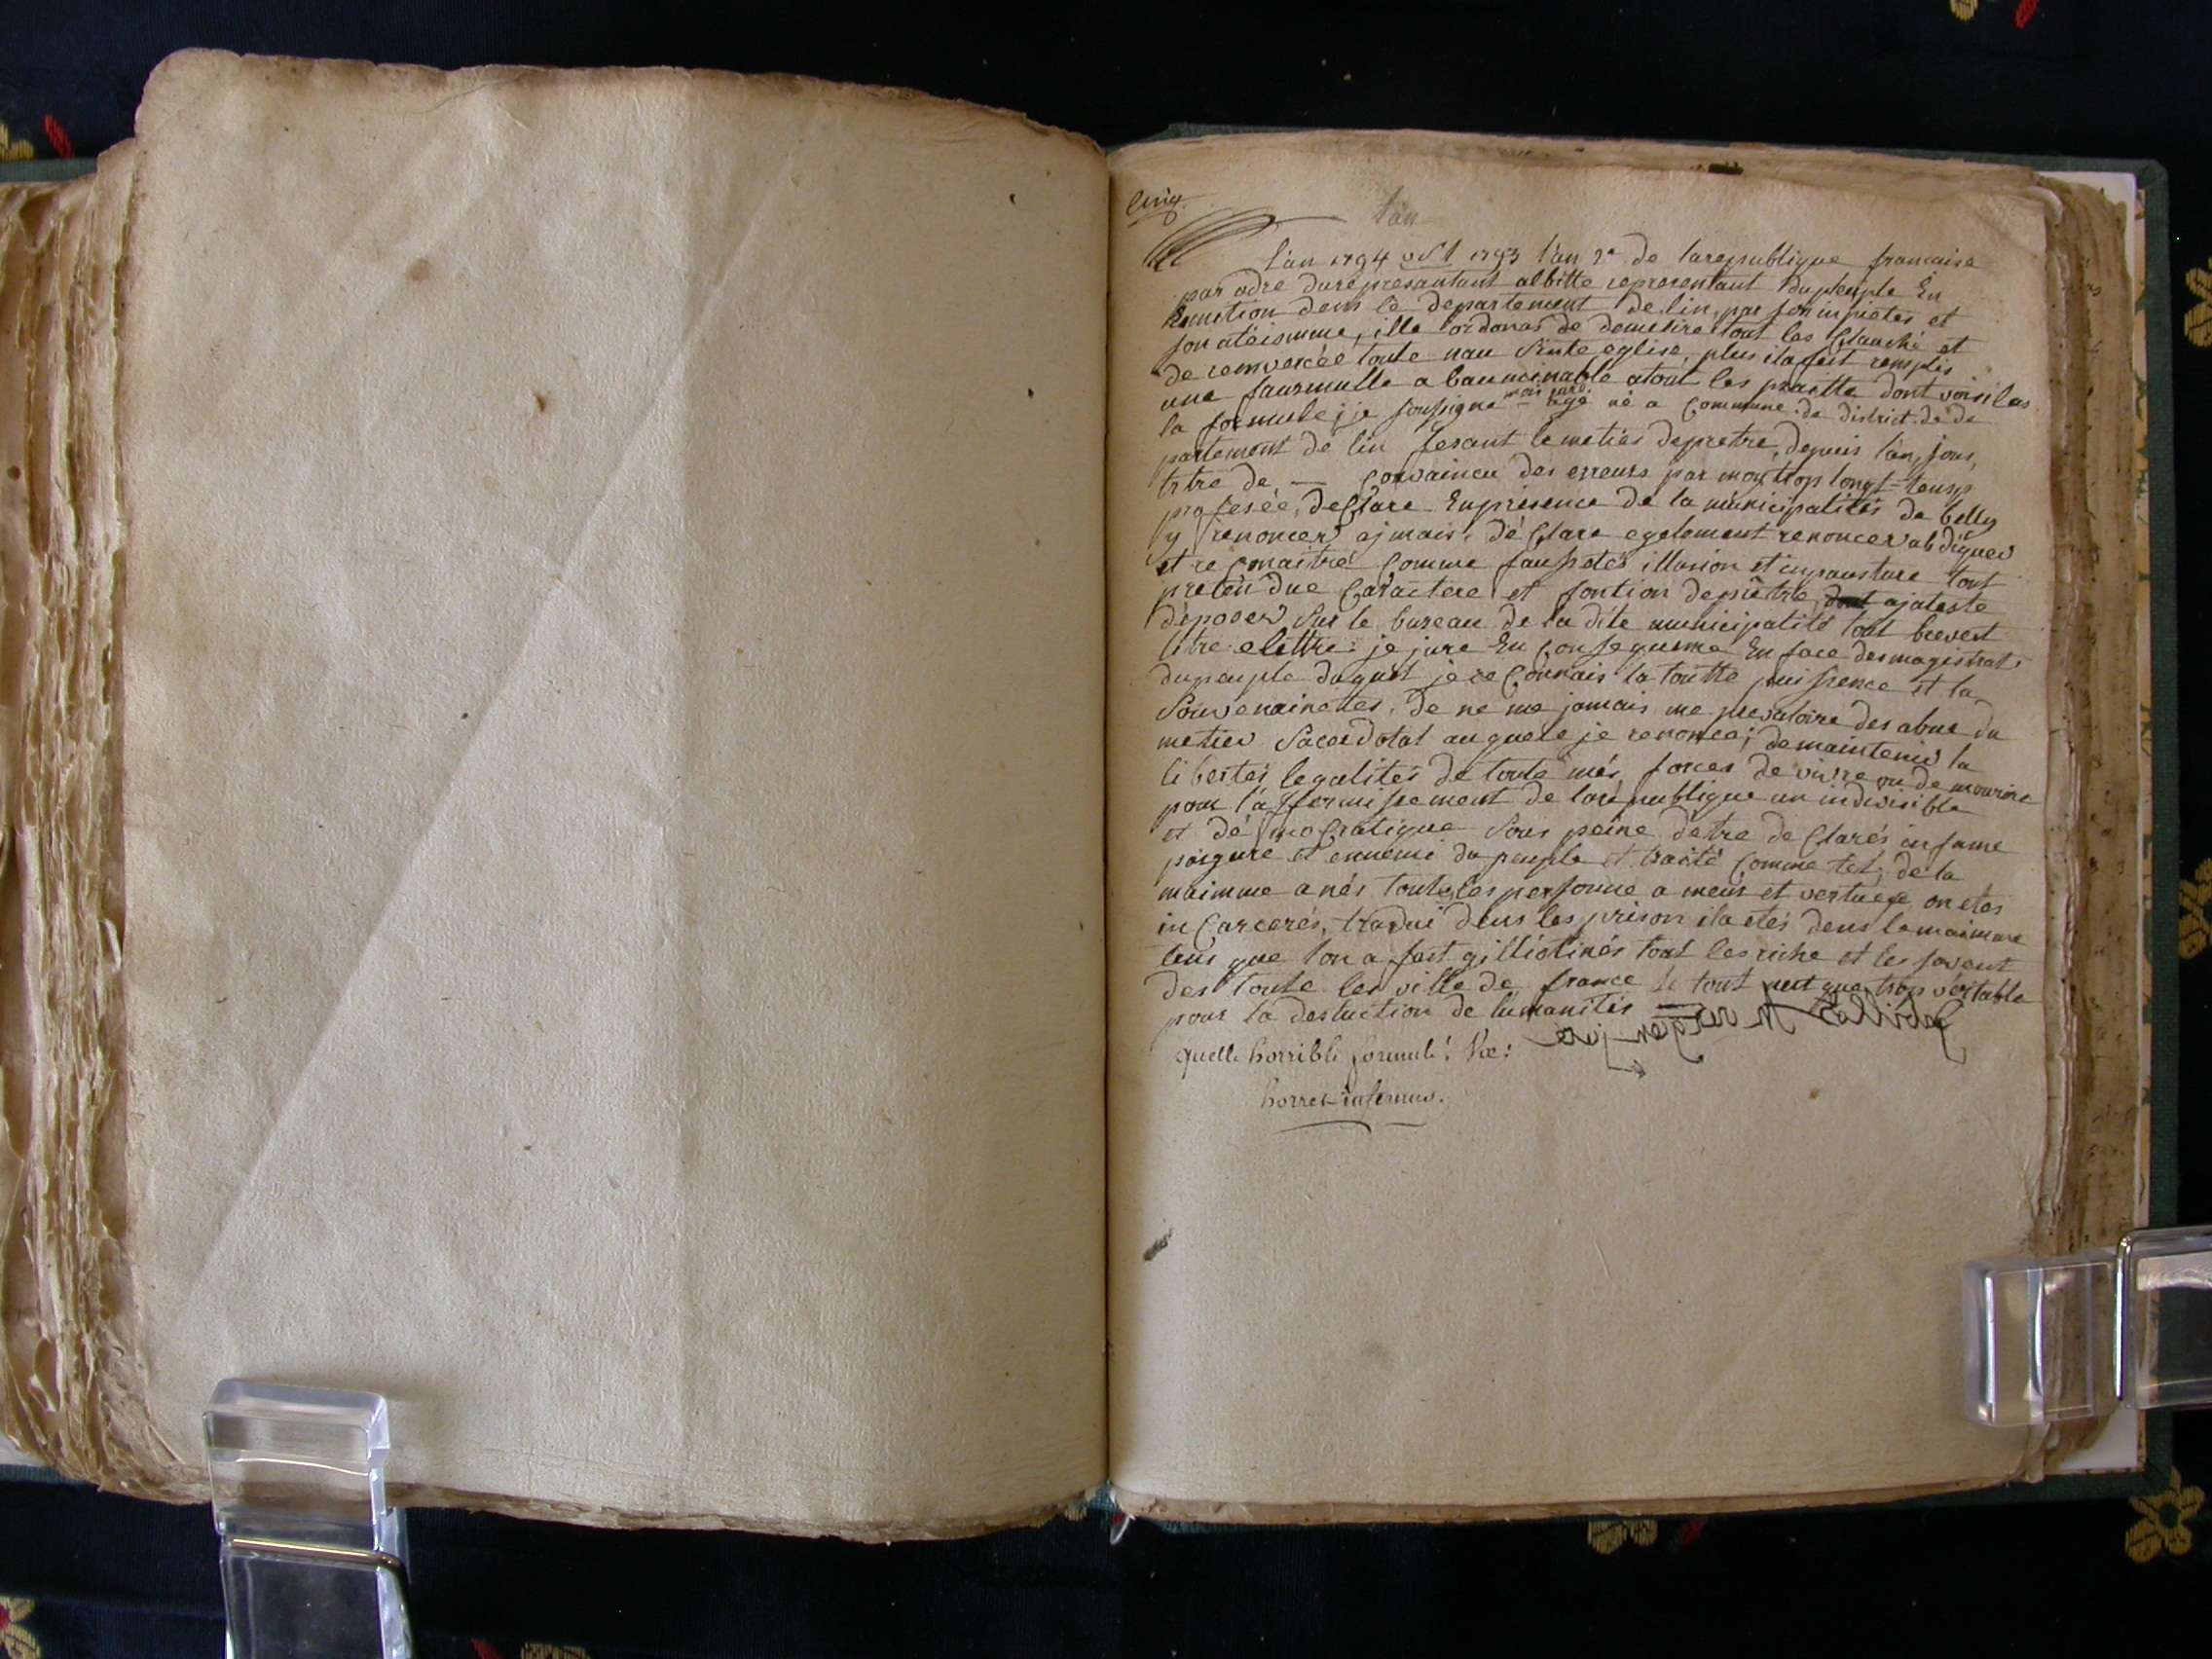 Cinq.
l'an
l'an 1794 v.s.t 1793 l'an 2e de larepublique francaise
par odre durepresantant albitte representant du peuple En
dens le departement de lin, par son inpietes et
son atéismme, ille ordonas de demelire tout les Clauché et
de remversée toute nau Sinte eglise, plus ila fest remplis
une faurmulle a baumcinable atout les praitte dont voisi las
la formule; je soussigne mois nard agé né a Commune de district de de
partement de lin fesant le metiés depretre, depuis l'an, jour,
titre de — Convaincu des erreurs par moy trop longt=temps
profesée, deClare Enpresence de la municipalités de belley
y renoncer ajmais, déClare egelement renoncer abdiquer
et reConaitré Comme faussetés illusion et inpausture tout
preténdue Caractere et fontion depretre, ajateste
déposer sur le bureau de la dite municipalité tout brevest
titre elettre: je jure En Consequense En face desmagistrat
dupeuple duquel je reConnais la toutte puissence et la
Souvenainetes, de ne me jamais me prevaloire des abue du
metier Sacerdotal auquele je renonce; demaintenir la
libertés legalités de toute més forces de vivre ou de mourire
pour l'affermissement de larépublique un indivisible
et déMoCratique sous peine détre de Clarés infame
paigure et ennemi du peuple et traité Comme tel; de la
maimme anés toutes les personne a meur et vertuese on etés
inCarcerés, tradui dens les prison ila etés dens le maimme
tems que l'on a fest gilliotinés tout les riche et les savent
des toute les ville de france le tout nest que trop veritable
pour la destuction de lumanités
quelle horrible formule! Vae!
horret infernus.